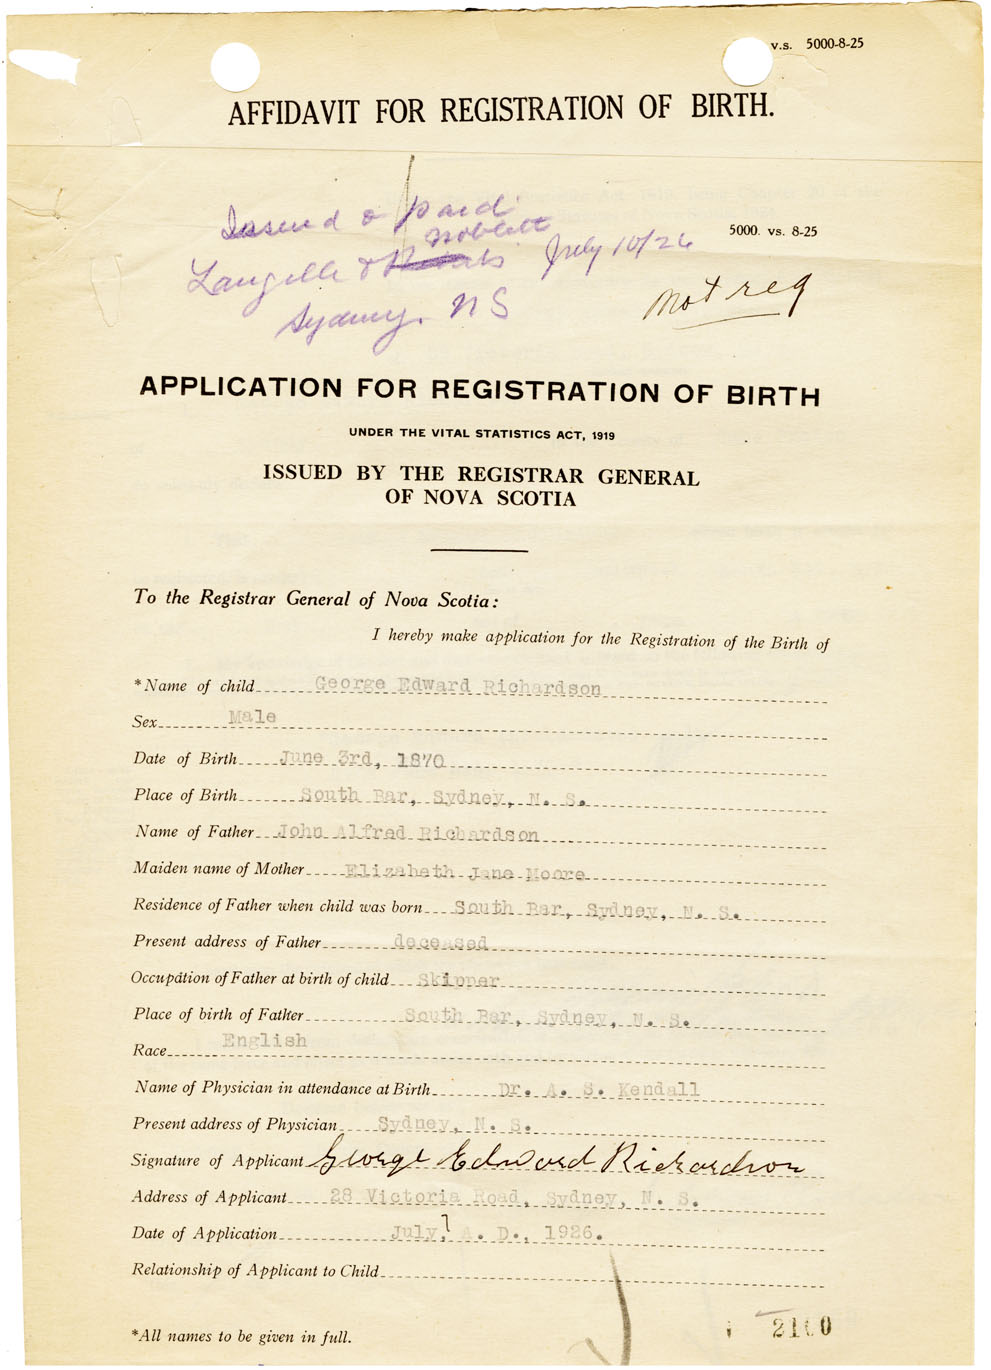 v.s. 5000-8-25
AFFIDAVIT FOR REGISTRATION OF BIRTH.
Issued & paid
Noblett
Langille & July 10/26
5000. vs. 8-25
Sydney. N S
Not reg
APPLICATION FOR REGISTRATION OF BIRTH
UNDER THE VITAL STATISTICS ACT, 1919
ISSUED BY THE REGISTRAR GENERAL
OF NOVA SCOTIA
To the Registrar General of Nova Scotia:
I hereby make application for the Registration of the Birth of
*Name of child George Edward Richardson
Sex Male
Date of Birth June 3rd, 1870
Place of Birth South Bar, Sydney, N. S.
Name of Father John Alfred Richardson
Maiden name of Mother Elizabeth Jane Moore
Residence of Father when child was born South Bar, Sydney, N. S.
Present address of Father deceased
Occupation of Father at birth of child Skipper
Place of birth of Father South Bar, Sydney, N. S.
Race English
Name of Physician in attendance at Birth Dr. A. S. Kendall
Present address of Physician Sydney, N. S.
Signature of Applicant George Edward Richardson
Address of Applicant 28 Victoria Road, Sydney, N. S.
Date of Application July 7, A. D., 1926.
Relationship of Applicant to Child
*All names to be given in full.